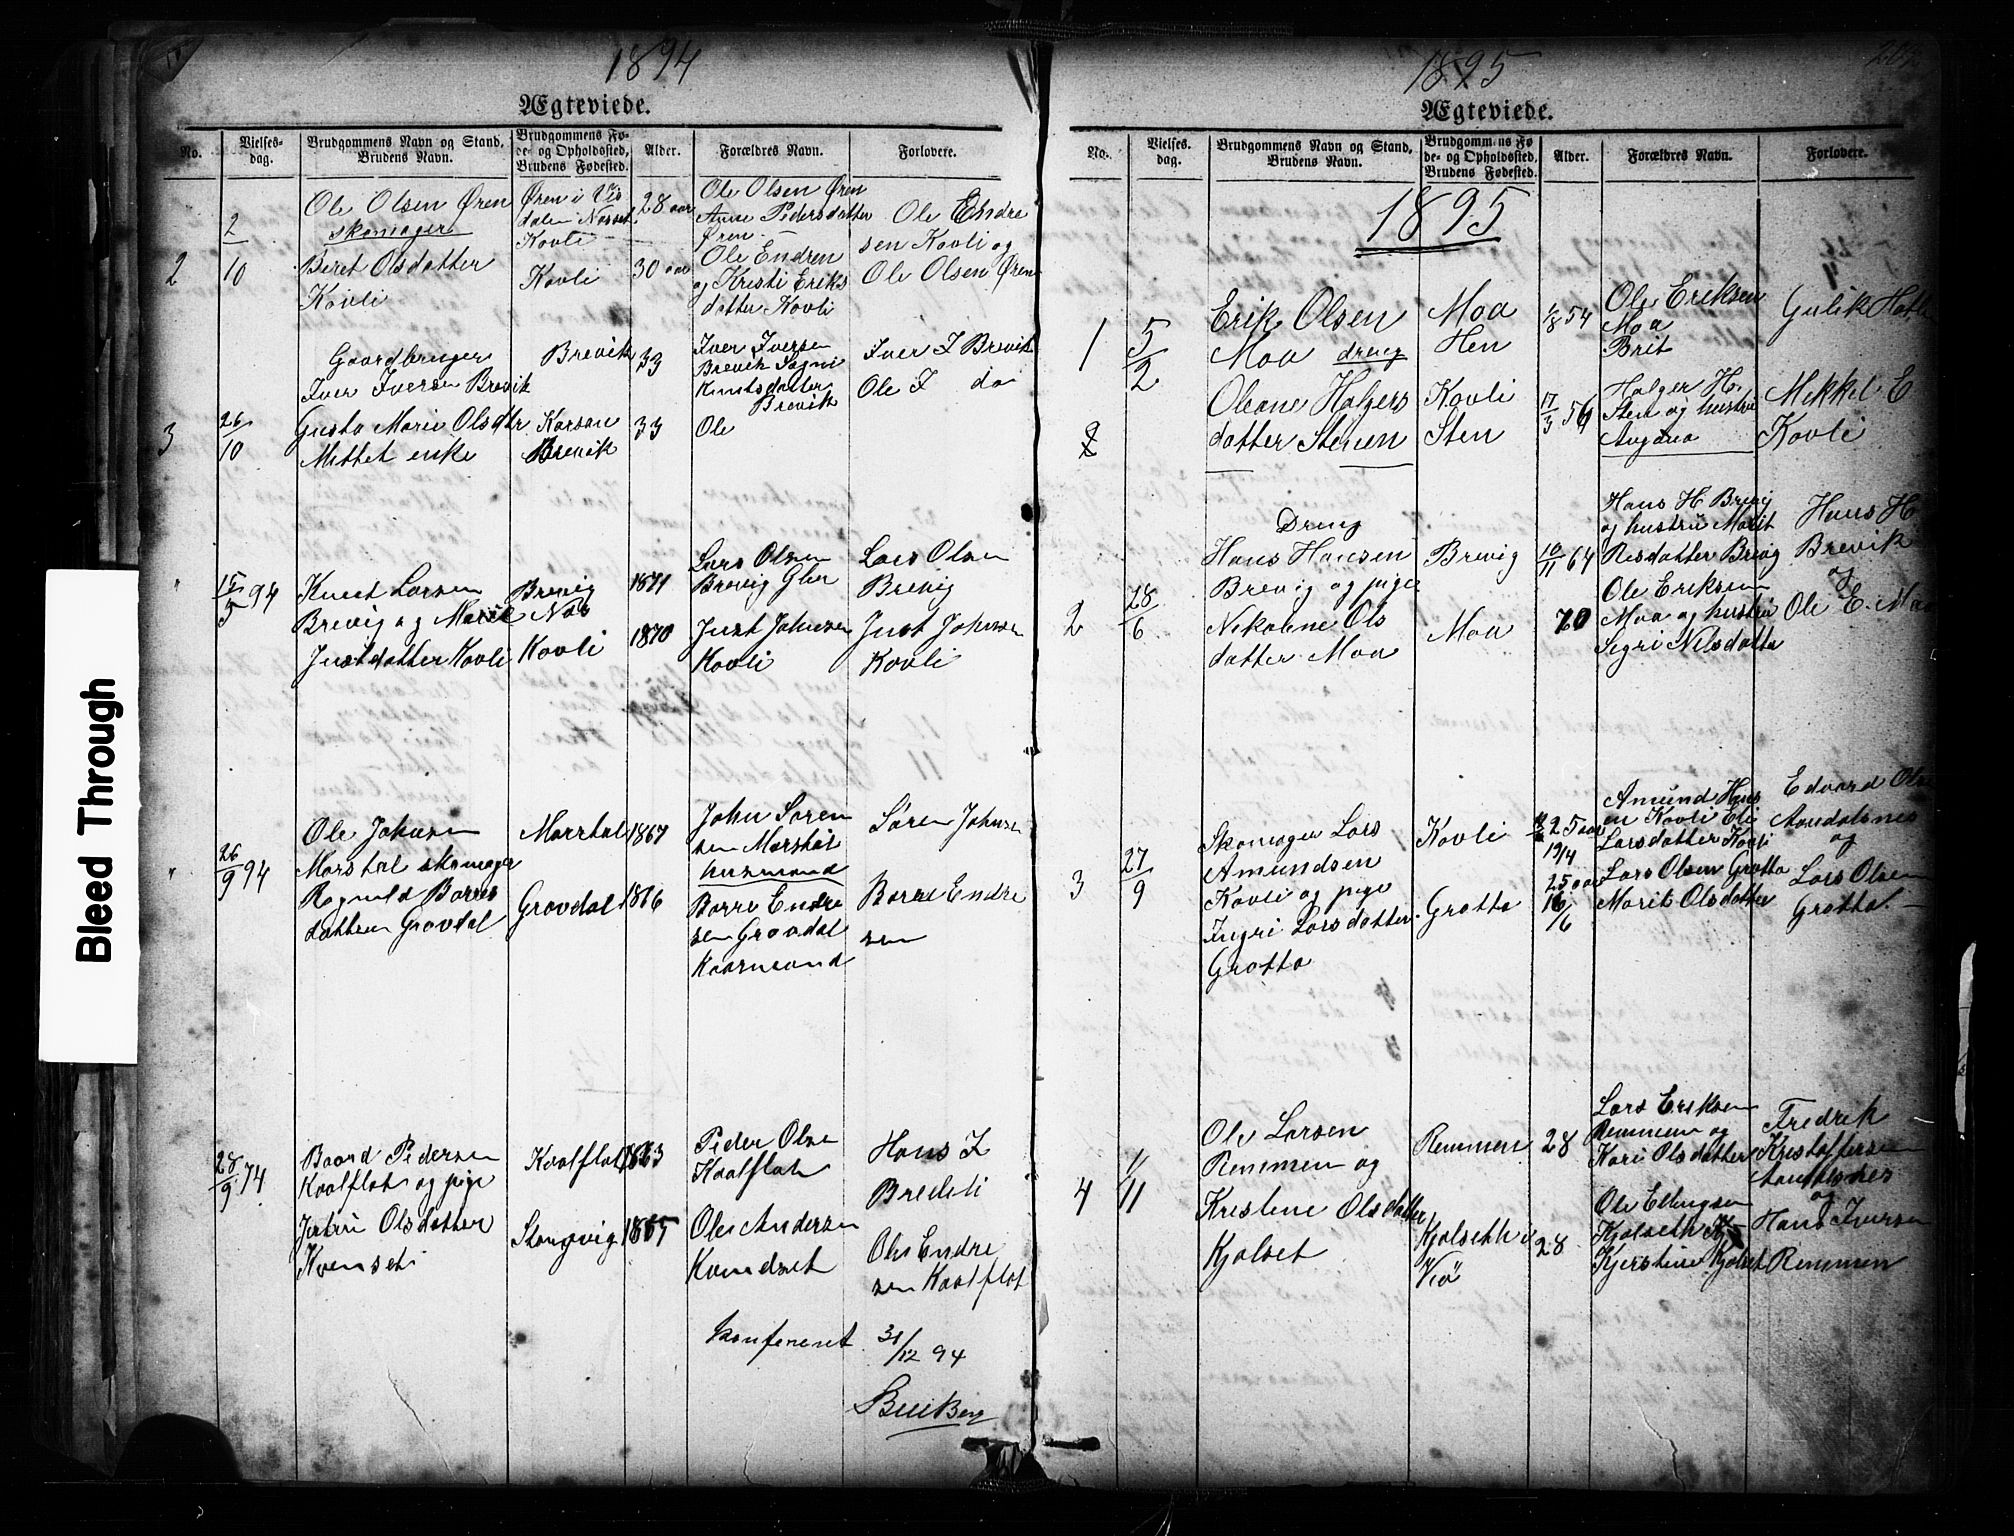 1894
Ægteviede.
No.
Vielses-
dag.
Brudgommens Navn og Stand,
Brudens Navn.
Brudgommens Fø-
de- og Opholdssted,
Brudens Fødested.
Alder.
Forældres Navn.
Forlovere.
2
2
10
Ole Olsen Øren
skomager
Beret Olsdatter
Kovli
Øren i Vis
dalen Nesset
Kovli
Kovli
28 aar
30 aar
Ole Olsen Øren
Anne Pedersdatter
Øren
Ole Endren
og Kristi Eriks
datter Kovli
Ole Endre
sen Kovli og
Ole Olsen Øren
3
26
10
Gaardbruger
Iver Iversen Brevik
Gusta Marie Olsdtr
Mittet enke
Brevik
Korsan
Brevik
33
33
Iver Iversen
Brevik
Knutsdatter
Brevik
Ole
Iver I Brevik
Ole I do
"
15
5
94
Knut Larsen
Brevig og Marit
Justdatter Kovli
Brevig
Næs
Kovli
1871
1870
Lars Olsen
Brevig
Just Johnsen
Kovli
Lars Olsen
Brevig
Just Johnsen
Kovli
"
26
9
94
Ole Johnsen
Morstøl skomager
Ragnild Borres
dattren Grovdal
Morstøl
Grovdal
1867
1866
John Soren
sen Morstøl
husmand
Borre Endre
sen Grovdal
Kaarmand
Søren Johnsen
Borre Endre
sen
28
9
74
Baard Pedersen
Kaalflot og pige
Olsdatter
Kvenset
Kaalflot
Stongvig
1863
1865
Peder Olsen
Kaalflot
Ole Andersen
Kvendset
Hans I
Bredeli
Ole Endre
sen Kaalflot
konfereret
31/12 94
1895
Ægteviede.
No.
Vielses-
dag.
Brudgommens Navn og Stand,
Brudens Navn.
Brudgommens Fø-
de- og Opholdssted,
Brudens Fødested.
Alder.
Forældres Navn.
Forlovere.
1895
1
5
2
Erik Olsen
Moa dreng
Oleane Holgers
datter Stenen
Moa
Hen
Kovli
Sten
1/8 54
17/3 56
Ole Eriksen
Moa
Brit
Holger H.
Sten og hustru
Gulik Hatle
Mikkel E
Kovli
2
2
28
6
Dreng
Hans Hansen
Brevig og pige
Nikoline Ols
datter Moa
Brevig
Moa
10/11 64
70
Hans H Brevig
og hustru Marit
Brevig
Ole Eriksen
Moa og hustru
Segri Nilsdatter
Hans H
Brevik
og
Ole E. Moa
3
27
9
Skomager Lars
Amundsen
Kovli og pige
Ingri Larsdatter
Grøtta
Kovli
Grøtta
25 aar
19/4
25 aar
16
/6
Amund Hans
en Kovli Eli
Larsdatter Kovli
Lars Olsen Grøtta
Marit Olsdatter
Edvard Ols
Aandalsnes
og
Lars Olsen
Grøtta
4
1/
11
Ole Larsen
Remmen og
Kristine Olsdatter
Kjølset
Remmen
Kjølseth i
Veø
28
28
Lars Eriksen
Remmem og
Kari Olsdatter
Ole Ellingsen
Kjølseth
Kjerstine Kjølset
Fredrik
Kristoffersen
Aandalsnes
og
Hans Iversen
Remmen
Bleed Through